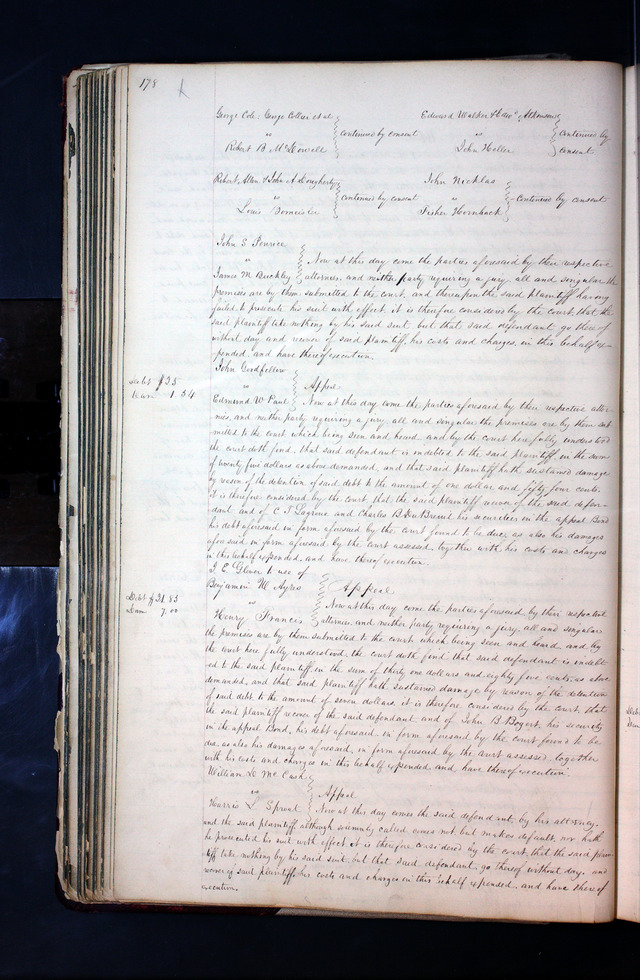 178
George Cole, George Collier et al
vs continued by consent
Robert B McDowell
Edward Walker & Edwd Atkinson
vs continued by
John Heller consent
Robert Allen & John A Dougherty
vs continued by consent
Louis
John Nicklas
vs continued by consent
Fisher Hornback
John S. Penrice
vs Now at this day come the parties aforesaid by their respective
James M. Buckley attornies, and neither party requiring a jury, all and singular the
premises are by them submitted to the court, and thereupon the said plaintiff having
failed to prosecute his suit with effect it is therefore considered by the court, that the
said plaintiff take nothing by his said suit but that said defendant go thereof
without day and recover of said plaintiff, his costs and charges, in this behalf ex-
pended, and have thereof execution.
John Goodfellow
Debt $25
vs Appeal
Dam 1.54
Edmund W Paul Now at this day come the parties aforesaid by their respective attor-
nies, and neither party requiring a jury, all and singular the premises are by them sub
mitted to the court which being seen and heard and by the court here fully understood
the court doth find, that said defendant is indebted to the said plaintiff, in the sum
of twenty five dollars as above demanded, and that said plaintiff hath sustained damage
by reason of the detention of said debt to the amount of one dollar and fifty four cents.
It is therefore considered by the court, that the said plaintiff recover of the said defen-
dant and of C T and Charles B his securities in the appeal Bond
his debt aforesaid in form aforesaid by the court found to be due, as also his damages
aforesaid in form aforesaid by the court assessed, together with his costs and charges
in this behalf expended, and have thereof execution.
Glover to use of
Benjamin M Ayres Appeal
Debt $31.85
vs Now at this day come the parties aforesaid, by their respective
Dam 7.00
Henry Francis attornies, and neither party requiring a jury, all and singular
the premises are by them submitted to the court which being seen and heard, and by
the court here fully understood, the court doth find that said defendant is indebt
ed to the said plaintiff in the sum of thirty one dollars and eighty five cents, as above
demanded, and that said plaintiff hath sustained damage by reason of the detention
of said debt, to the amount of seven dollars it is therefore considered by the court, that
the said plaintiff recover of the said defendant, and of John B Bogert his security
in the appeal Bond, his debt aforesaid in form aforesaid by the court found to be
due, as also his damages aforesaid, in form aforesaid by the court assessed, together
with his costs and charges in this behalf expended and have thereof execution.
William D McCash
vs Appeal
Harris L Sproat Now at this day comes the said defendant by his attorney,
and the said plaintiff, although solemnly called comes not but makes default, nor hath
he prosecuted his suit with effect it is therefore considered by the court, that the said plain-
tiff take nothing by his said suit, but that said defendant, go thereof without day, and
recover of said plaintiff, his costs and charges in this behalf expended, and have thereof
execution.